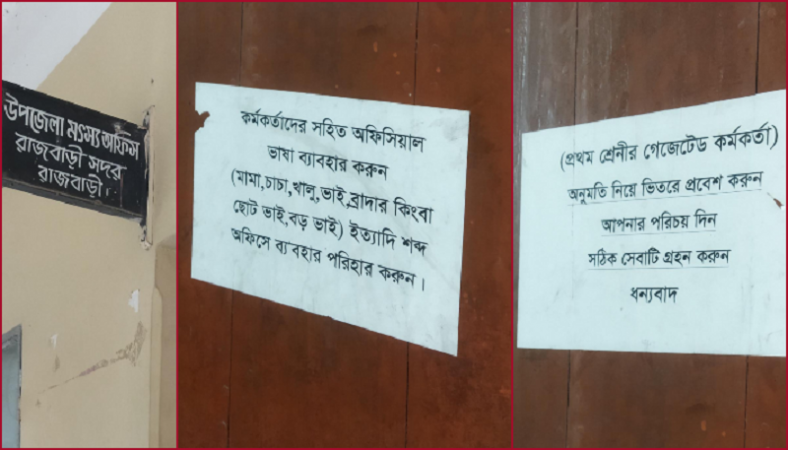 উপজেলা মৎস্য অফিস
রাজবাড়ী সদর
রাজবাড়ী।
কর্মকর্তাদের সহিত অফিসিয়াল
ভাষা ব্যাবহার করুন
(মামা,চাচা,খালু,ভাই,ব্রাদার কিংবা
ছোট ভাই,বড় ভাই) ইত্যাদি শব্দ
অফিসে ব্য বহার পরিহার করুন।
(প্রথম শ্রেনীর গেজেটেড কর্মকর্তা)
অনুমতি নিয়ে ভিতরে প্রবেশ করুন
আপনার পরিচয় দিন
সঠিক সেবাটি গ্রহন করুন
ধন্যবাদ